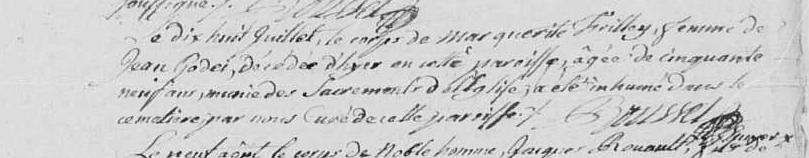 Le dix huit Juillet, le corps de marguerite frilley, femme de
Jean Godet, décédée d'hyer en cette paroisse, âgée de cinquante
neuf ans, munie des Sacrements de l'Eglise, a été inhumé dans le
cemetière par nous Curé de cette paroisse.
Le neuf août le corps de Noble homme, Jacques Rouault, Sr de